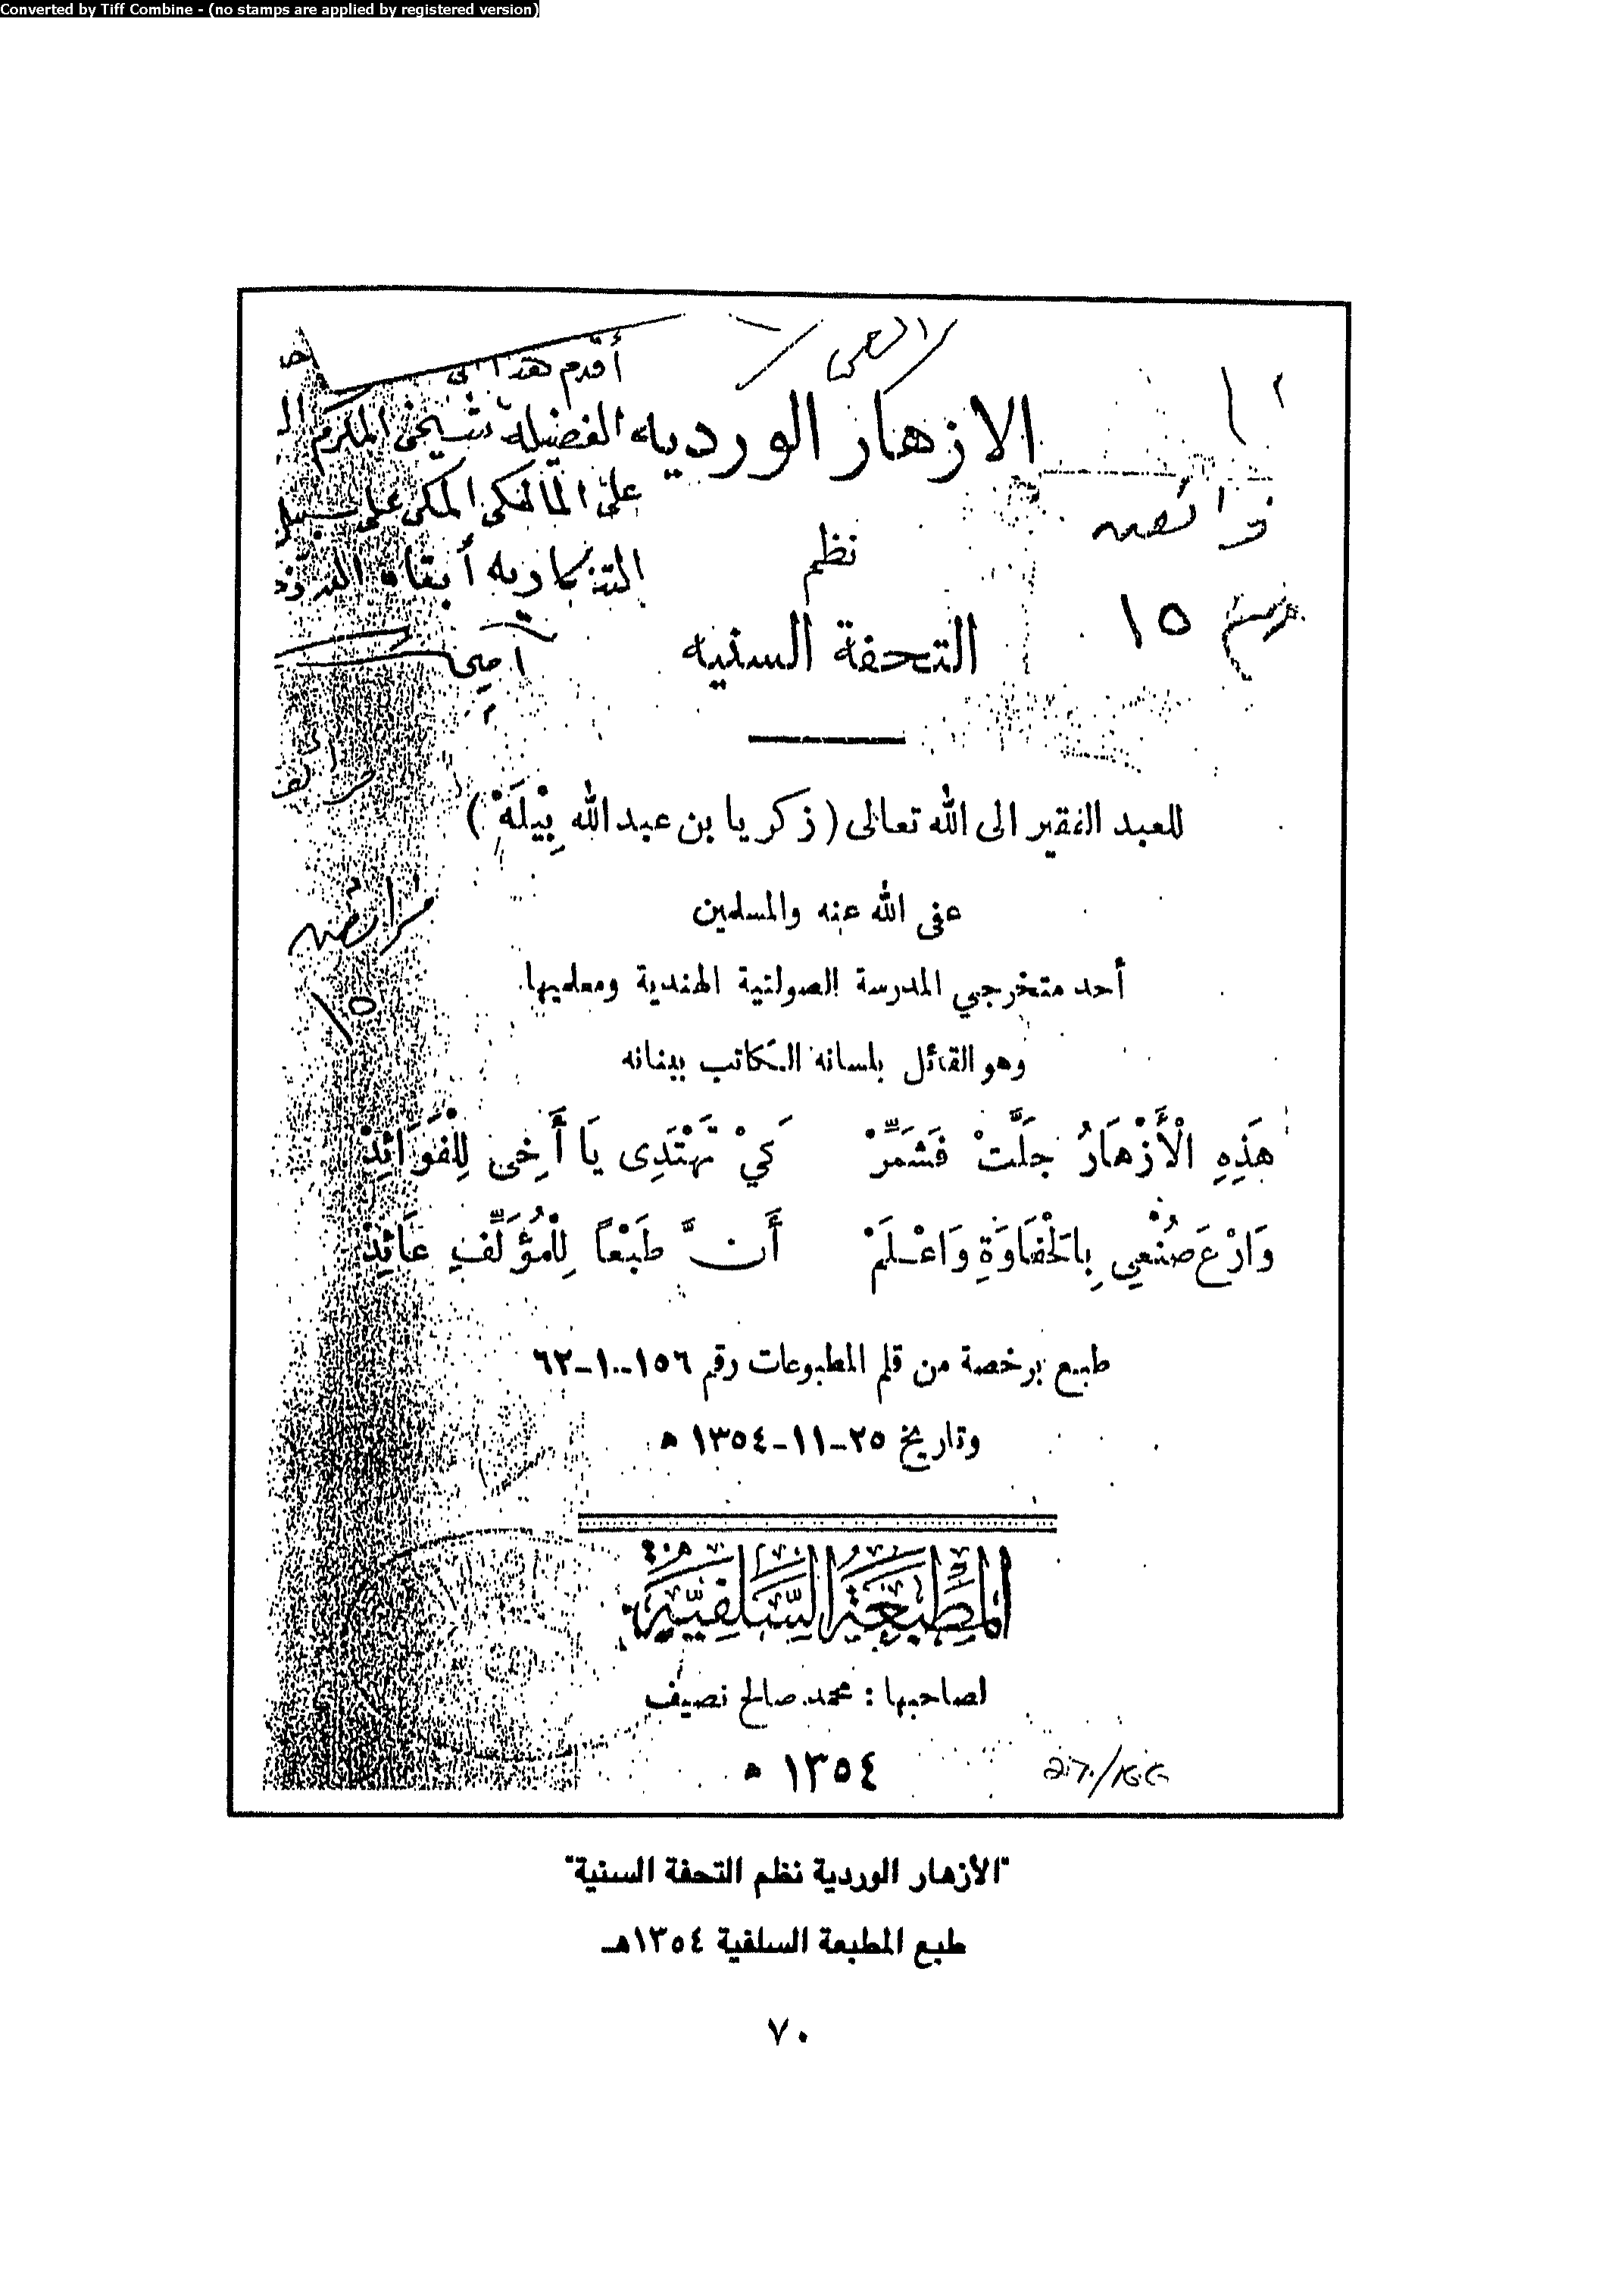 Converted by Tiff Combine - (no stamps are applied by registered version)
أقدم هذا الى
الفضيلة شيخى المكرم
على المالكى المكى على سبيل
التذكارية أبقاه
آمين
فرائضه
١٥
فرائضه
١٥
الازهار الورديه
نظم
التحفة السنيه
للعبد الفقير الى الله تعالى ( زكريا بن عبدالله بِيْلَهْ )
عفى الله عنه والمسلمين
أحد متخرجي المدرسة الصولتية الهندية ومعلميها
وهو القائل بلسانه الكاتب ببنانه
هَذِهِ الْأَزْهَارُ جَلَّتْ فَشَمِّرْ كَيْ تَهْتَدِى يَا أَخِى لِلْفَوَائِدْ
وَارْعَ صُنْعِي بِالْحَفَاوَةِ وَاعْلَمْ أَنَّ طَبْعاً لِلْمُؤَلِّفِ عَائِدْ
طبع برخصة من قلم المطبوعات رقم ١٥٦-١٠-٦٣
وتاريخ ٢٥-١١-١٣٥٤ ه
المطبعة السلفية
لصاحبها : محمد صالح نصيف
١٣٥٤ ه
"الأزهار الوردية نظم التحفة السنية"
طبع المطبعة السلفية ١٣٥٤هـ
٧٠